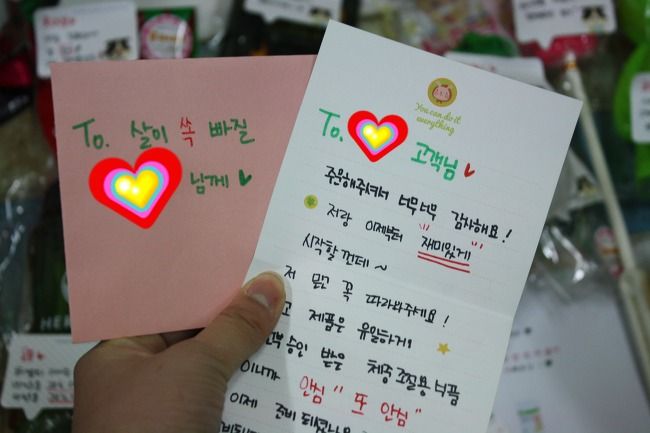 To. 살이 쏙 빠질
님께
You can do it
everything
To.
고객님
주문해주셔서 너무너무 감사해요!
저랑 이제부터 재미있게
시작할건데~
저 믿고 꼭 따라와주세요!
제품은 유일하게
승인 받은 체중조절용식품
이니까 안심 또 안심
이제 준비 되셨나요